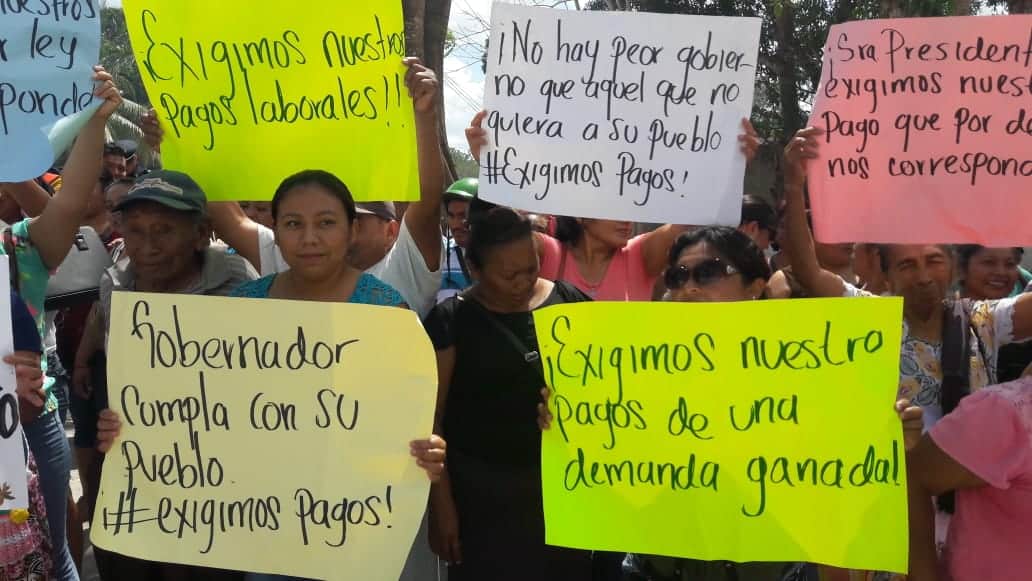 ley
¡Exigimos nuestros
pagos laborales!!
¡No hay peor gobier-
no que aquel que no
quiera a su pueblo
#Exigimos Pagos!
¡Sra President
exigimos nuest
Pago que por de
nos correspond
Gobernador
Cumpla con su
pueblo.
¡#exigimos pagos!
¡Exigimos nuestro
pagos de una
demanda ganada!